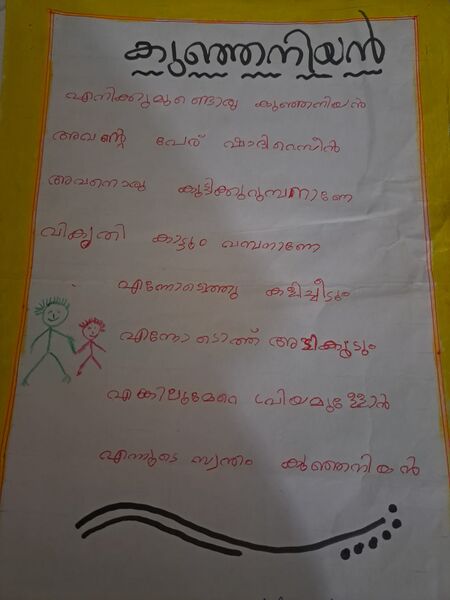 കുഞ്ഞനിയൻ
എനിക്കുമുണ്ടൊരു കുഞ്ഞനിയൻ
അവന്റെ പേര് ഷാദിസൈൻ
അവനൊരു കുട്ടിക്കുറുമ്പനാണേ
വികൃതി കാട്ടും വമ്പനാണേ
എന്നോടൊത്തു കളിച്ചീടും
എന്നോടൊത്ത് അടികൂടും
എങ്കിലുമേറെ പ്രിയമുള്ളോൻ
എന്നുടെ സ്വന്തം കുഞ്ഞനിയൻ